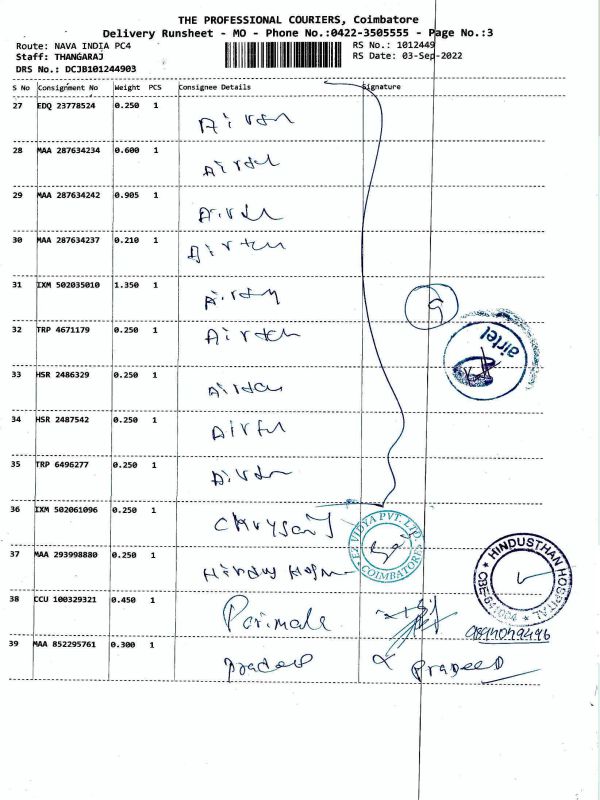 THE PROFESSIONAL COURIERS, Coimbatore
Delivery Runsheet - MO - Phone No.:0422-3505555 - Page No.:3
Route: NAVA INDIA PC4 RS No.: 1012449
Staff: THANGARAJ RS Date: 03-Sep-2022
DRS No.: DCJB101244903
S No Consignment No Weight PCS Consignee Details Signature
27 EDQ 23778524 0.250 1
Airtel
28 MAA 287634234 0.600 1
Airtel
29 MAA 287634242 0.905 1
Airtel
30 MAA 287634237 0.210 1
Airtel
31 IXM 502035010 1.350 1
Airtel
9
32 TRP 4671179 0.250 1
Airtel
airtel
33 HSR 2486329 0.250 1
Airtel
34 HSR 2487542 0.250 1
Airtel
35 TRP 6496277 0.250 1
Airtel
36 IXM 502061096 0.250 1
EZ VIDYA PVT. LTD.
COIMBATORE
37 MAA 293998880 0.250 1
HINDUSTHAN HOSPITAL
38 CCU 100329321 0.450 1
Parimala
39 MAA 852295761 0.300 1
Pradeep PRADEEP